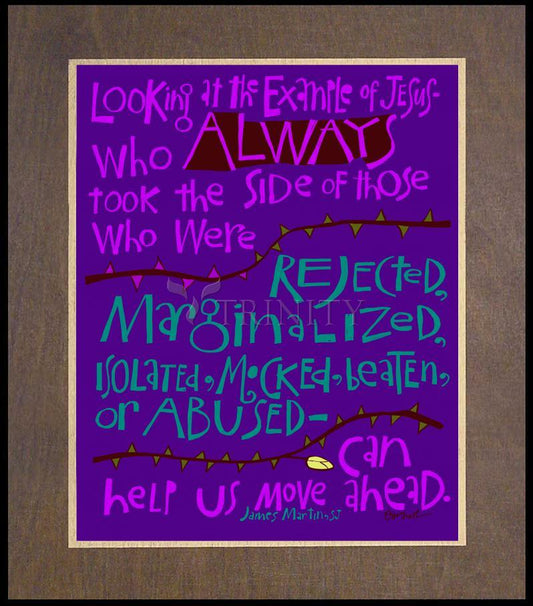 Looking at the Example of Jesus-
Who ALWAYS
took the Side of those
Who Were
REJECted,
MarginaLIZed,
ISOLATED, MOCKED, beaten,
or ABUSED-
TRINITY
can
help us move ahead.
James Martin, SJ